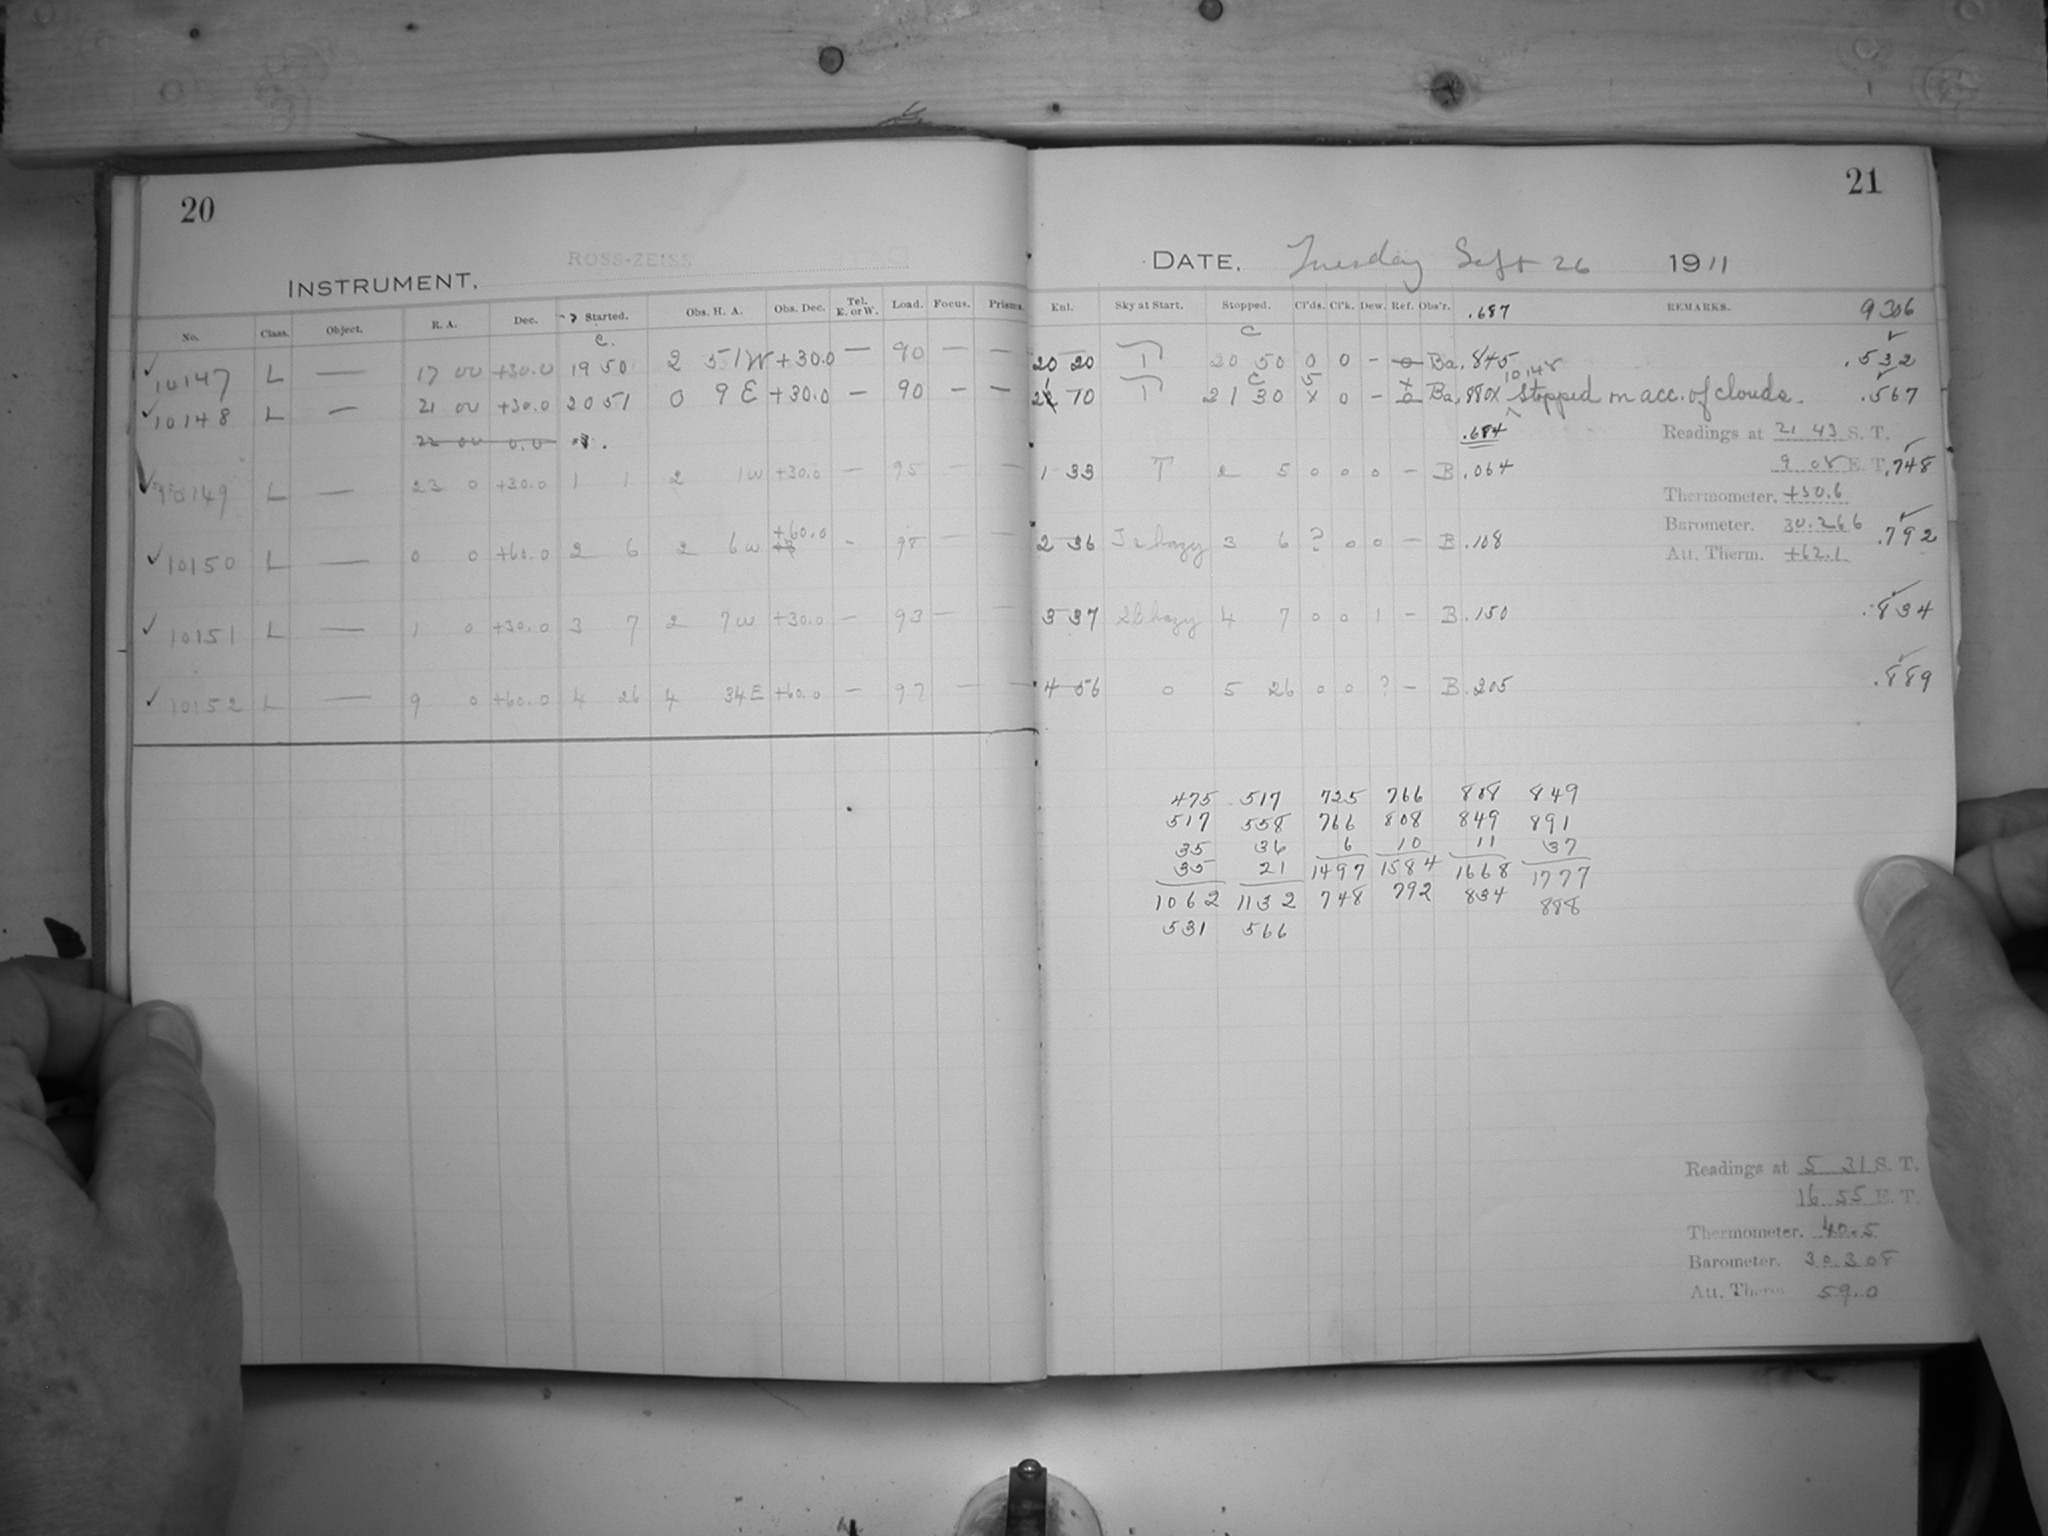 20
INSTRUMENT, ROSS-ZEISS
No. Class. Object. R. A. Dec. Started. Obs. H. A. Obs. Dec. Tel. E. or W. Load. Focus. Prisms.
C.
10147 L — 17 00 +30.0 19 50 2 51W +30.0 — 90 — —
10148 L — 21 00 +30.0 20 51 0 9 E +30.0 — 90 — —
22 00 0.0
10149 L — 23 0 +30.0 1 1 2 1W +30.0 — 95 — —
10150 L — 0 0 +60.0 2 6 2 6W +60.0 - 95 — —
10151 L — 1 0 +30.0 3 7 2 7W +30.0 — 93 — —
10152 L — 9 0 +60.0 4 26 4 34E +60.0 — 97 — —
21
DATE, Tuesday Sept 26 1911
Enl. Sky at Start. Stopped. Cl'ds. Cl'k. Dew. Ref. Obs'r. .687 REMARKS. 9306
C
20 20 T 20 50 0 0 - 0 Ba .845 .532
C 5 10148
70 T 21 30 X 0 - Ba .880X Stopped on acc. of clouds. .567
.684 Readings at 21 43 S. T.
1 33 T 2 5 0 0 0 — B .064 9 08 E. T. .748
Thermometer. +50.6
Barometer. 30.266
2 36 hazy 3 6 ? 0 0 — B .108 .792
Att. Therm. +62.1
3 37 hazy 4 7 0 0 1 — B .150 .834
4 56 0 5 26 0 0 ? — B .205 .889
475 517 725 766 808 849
517 558 766 808 849 891
35 36 6 10 11 37
35 21 1497 1584 1668 1777
1062 1132 748 792 834 888
531 566
Readings at 5 31 S. T.
16 55 E. T.
Thermometer. 40.5
Barometer. 30.308
Att. Therm. 59.0